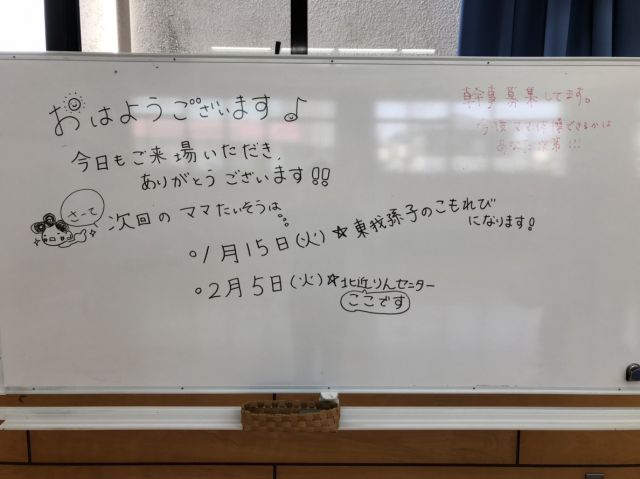 おはようございます♪
今日もご来場いただき、
ありがとうございます!!
さーて
次回のママたいそうは…
○1月15日(火)☆東我孫子のこもれび
になります!
○2月5日(火)☆北近りんセンター
ここです
幹事募集してます。
今後ママ体操できるかは
あなた次第!!!